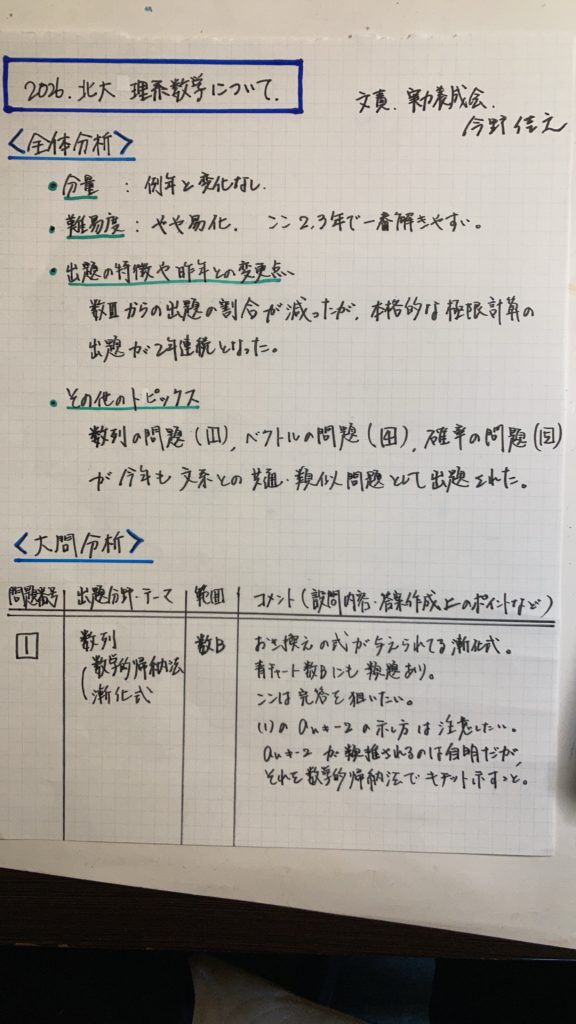 2026. 北大 理系数学について.
文責. 実力養成会.
今野 佳元
<全体分析>
・分量 : 例年と変化なし.
・難易度 : やや易化. ここ2,3年で一番解きやすい。
・出題の特徴や昨年との変更点
数Ⅲからの出題の割合が減ったが、本格的な極限計算の
出題が2年連続となった。
・その他のトピックス
数列の問題(1), ベクトルの問題(4), 確率の問題(5)
が今年も文系との共通・類似問題として出題された。
<大問分析>
問題番号 出題分野・テーマ 範囲 コメント(設問内容・答案作成上のポイントなど)
1 数列 数B おき換えの式が与えられてる漸化式。
(数学的帰納法 青チャート数Bにも類題あり。
漸化式 ここは完答を狙いたい。
(1)の an≠-2 の示し方は注意したい。
an≠-2 が類推されるのは自明だが、
それを数学的帰納法でキチッと示すこと。